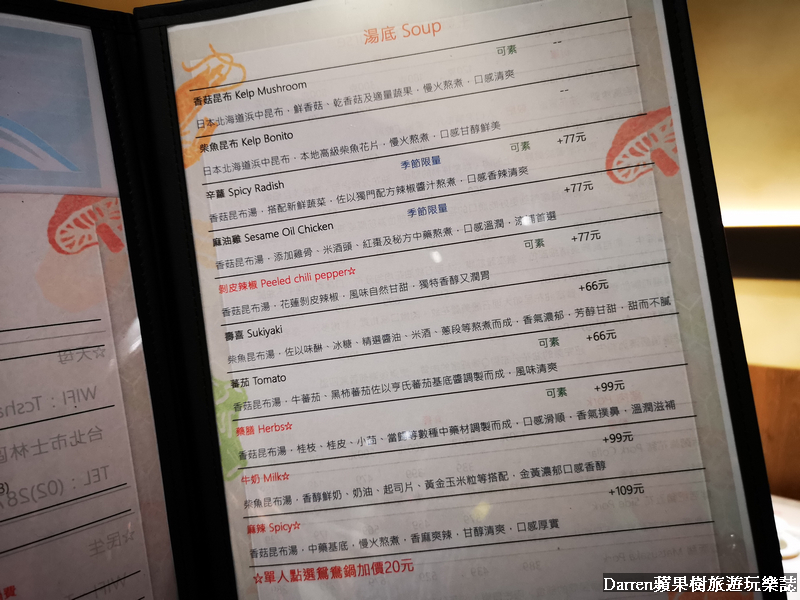 湯底 Soup
香菇昆布 Kelp Mushroom 可素 --
日本北海道浜中昆布，鮮香菇、乾香菇及適量蔬果，慢火熬煮，口感清爽
柴魚昆布 Kelp Bonito --
日本北海道浜中昆布，本地高級柴魚花片，慢火熬煮，口感甘醇鮮美
辛蘿 Spicy Radish 季節限量 可素 +77元
香菇昆布湯，搭配新鮮蔬菜，佐以獨門配方辣椒醬汁熬煮，口感香辣清爽
麻油雞 Sesame Oil Chicken 季節限量 +77元
香菇昆布湯，添加雞骨、米酒頭、紅棗及秘方中藥熬煮，口感溫潤，首選
剝皮辣椒 Peeled chili pepper☆ 可素 +77元
香菇昆布湯，花蓮剝皮辣椒，風味自然甘甜，獨特香醇又潤胃
壽喜 Sukiyaki +66元
柴魚昆布湯，佐以味醂、冰糖、精選醬油、米酒、蔥段等熬煮而成，香氣濃郁，芳醇甘甜，甜而不膩
蕃茄 Tomato 可素 +66元
香菇昆布湯，牛蕃茄、黑柿蕃茄佐以亨氏蕃茄基底醬調製而成，風味清爽
藥膳 Herbs☆ 可素 +99元
香菇昆布湯，桂枝、桂皮、小茴、當歸等數種中藥材調製而成，口感滑順，香氣撲鼻，溫潤滋補
牛奶 Milk☆ +99元
柴魚昆布湯，香醇鮮奶、奶油、起司片、黃金玉米粒等搭配，金黃濃郁口感香醇
麻辣 Spicy☆ +109元
香菇昆布湯，中藥基底，慢火熬煮，香麻爽辣，甘醇清爽，口感厚實
☆單人點選鴛鴦鍋加價20元
Darren蘋果樹旅遊玩樂誌